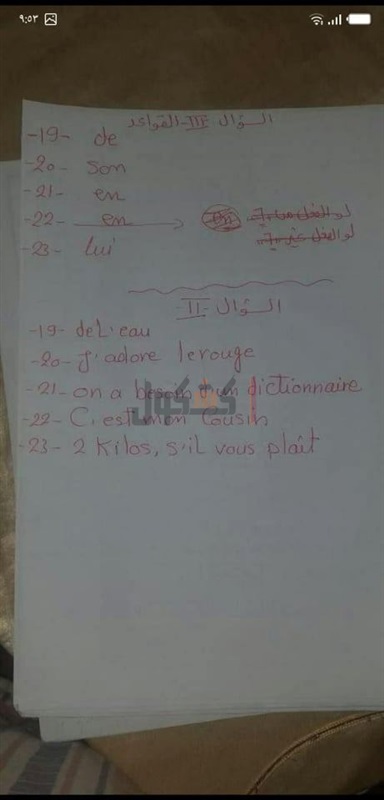 ٩:٥٣
السؤال III- القواعد
-19- de
-20- son
-21- en
-22- en
-23- lui
السؤال -II-
-19- de L'eau
-20- J'adore le rouge
-21- on a besoin d'un dictionnaire
-22- C'est mon cousin
-23- 2 Kilos, s'il vous plaît
كشكول